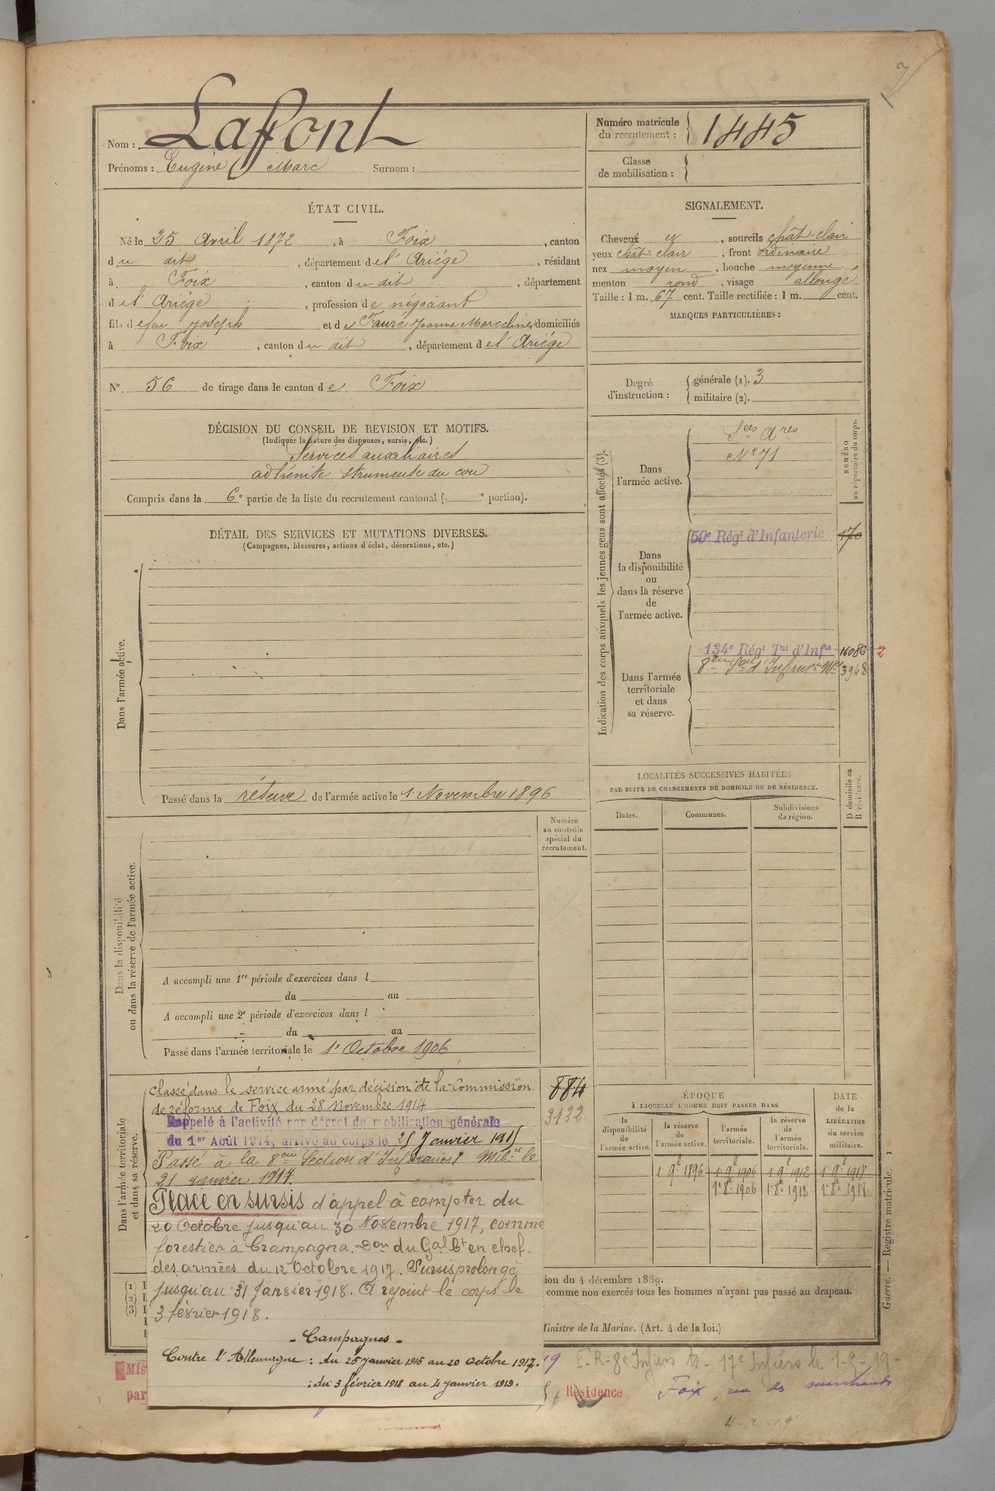 7
Nom : Laffont
Prénoms : Eugène Marc Surnom :
Numéro matricule du recrutement : 1445
Classe de mobilisation :
ÉTAT CIVIL.
Né le 25 Avril 1872, à Foix, canton
du dit, département de l'Ariège, résidant
à Foix, canton du dit, département
de l'Ariège, profession de négociant
fils de feu Joseph et de Fauré Jeanne Marceline, domiciliés
à Foix, canton du dit, département de l'Ariège
N° 56 de tirage dans le canton de Foix
SIGNALEMENT.
Cheveux et, sourcils chât-clair
yeux chât clair, front ordinaire
nez moyen, bouche moyenne
menton rond, visage allongé
Taille : 1 m. 67 cent. Taille rectifiée : 1 m. cent.
MARQUES PARTICULIÈRES :
Degré d'instruction : générale (1). 3
militaire (2).
DÉCISION DU CONSEIL DE REVISION ET MOTIFS.
(Indiquer la nature des dispenses, sursis, etc.)
Services auxiliaires
adénite strumeuse du cou
Compris dans la 6e partie de la liste du recrutement cantonal ( e portion).
DÉTAIL DES SERVICES ET MUTATIONS DIVERSES.
(Campagnes, blessures, actions d'éclat, décorations, etc.)
Dans l'armée active.
Passé dans la réserve de l'armée active le 1 Novembre 1896
Indication des corps auxquels les jeunes gens sont affectés (3).
NUMÉRO au répertoire du corps.
Dans l'armée active.
Sces Ares
N° 71
Dans la disponibilité ou dans la réserve de l'armée active.
59e Régt d'Infanterie 170
Dans l'armée territoriale et dans sa réserve.
134e Régt Tal d'Infie 16086 2
8eme Son d'Infirmiers Mres 3948
LOCALITÉS SUCCESSIVES HABITÉES
PAR SUITE DE CHANGEMENTS DE DOMICILE OU DE RÉSIDENCE.
Dates. Communes. Subdivisions de région. D domicile ou R résidence.
Numéro au contrôle spécial du recrutement.
Dans la disponibilité ou dans la réserve de l'armée active.
A accompli une 1re période d'exercices dans l
du au
A accompli une 2e période d'exercices dans l
du au
Passé dans l'armée territoriale le 1er Octobre 1906
Dans l'armée territoriale et dans sa réserve.
884
3132
Classé dans le service armé par décision de la Commission
de réforme de Foix du 28 novembre 1914
Rappelé à l'activité par décret de mobilisation générale
du 1er Août 1914, arrivé au corps le 25 Janvier 1915
Passé à la 8eme Section d'Infirmiers Mres le
21 janvier 1917.
Placé en sursis d'appel à compter du
20 Octobre jusqu'au 30 Novembre 1917, comme
forestier à Crampagna. Don du Gal Ct en chef
des armées du 12 Octobre 1917. Sursis prolongé
jusqu'au 31 Janvier 1918. A rejoint le corps le
3 février 1918.
- Campagnes -
Contre l'Allemagne : du 25 janvier 1915 au 20 Octobre 1917.
: du 3 février 1918 au 4 janvier 1919.
ÉPOQUE
À LAQUELLE L'HOMME DOIT PASSER DANS
la disponibilité de l'armée active. la réserve de l'armée active. l'armée territoriale. la réserve de l'armée territoriale.
DATE de la LIBÉRATION du service militaire.
1 9e 1896 1 9e 1906 1 9e 1912 1 9e 1918
1er 8e 1906 1er 8e 1912 1er 8e 1918
(1)
(2)
(3)
ion du 4 décembre 1889.
comme non exercés tous les hommes n'ayant pas passé au drapeau.
Ministre de la Marine. (Art. 4 de la loi.)
Guerre. — Registre matricule. 1
Mis
par
Résidence Foix, rue des marchands